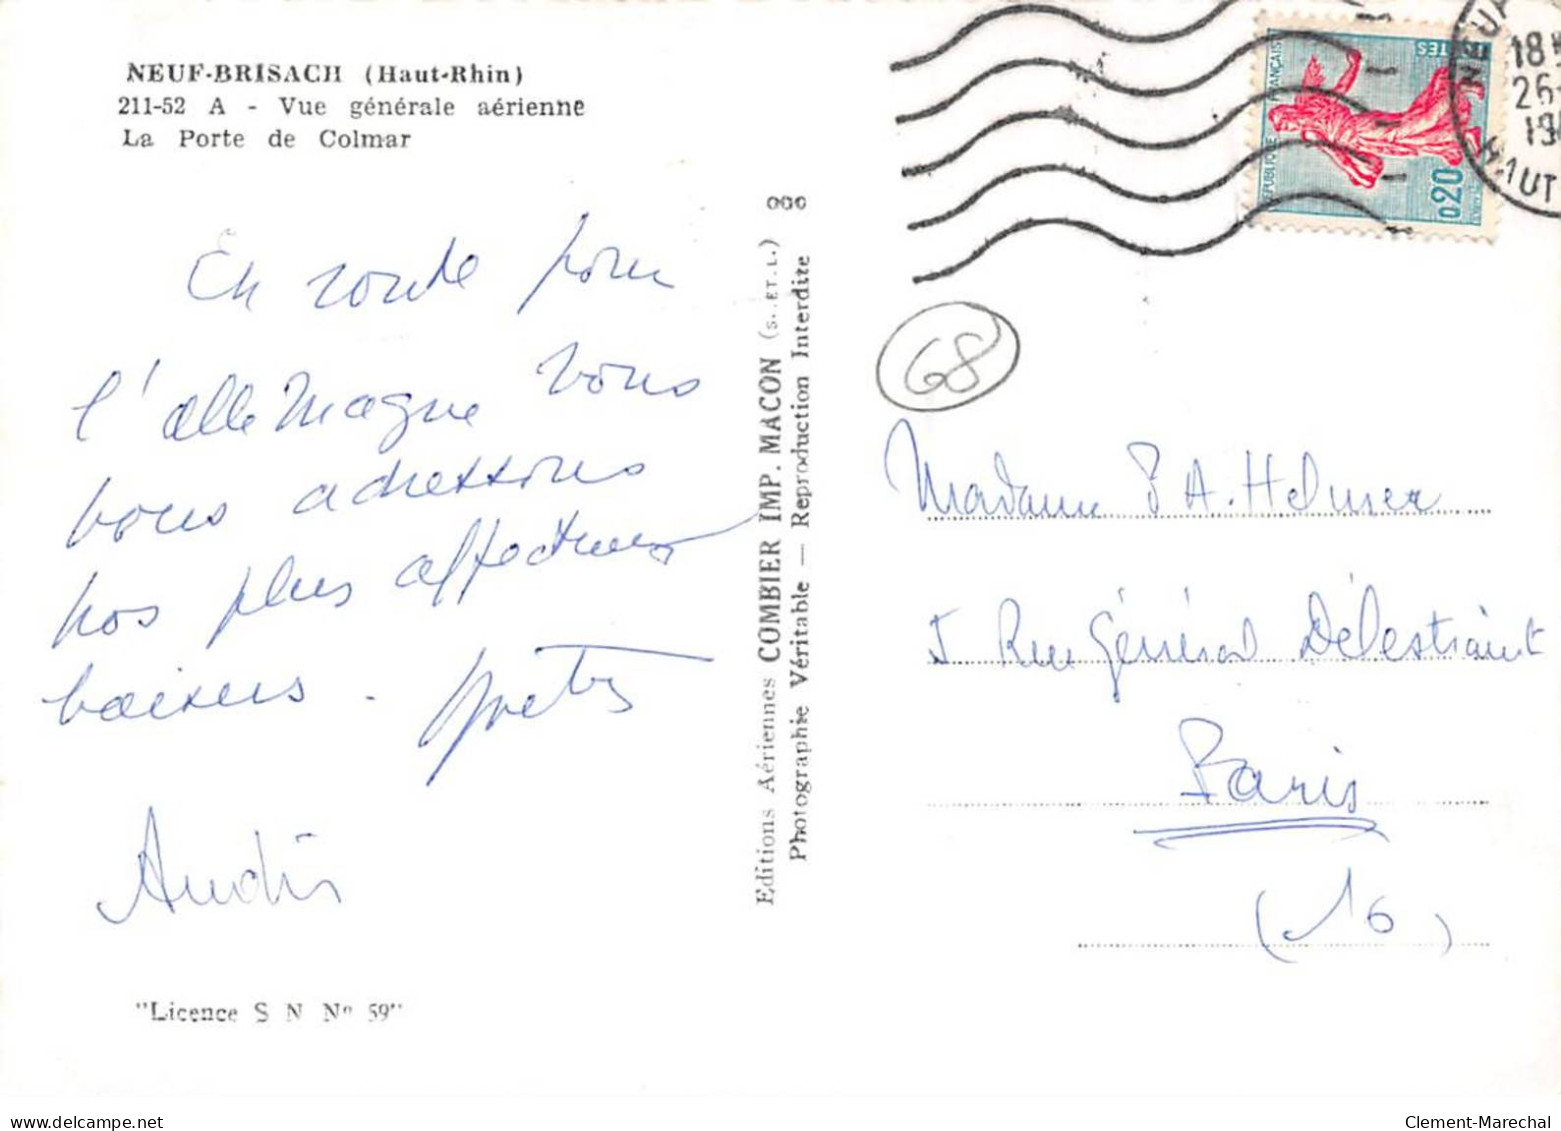 NEUF-BRISACH (Haut-Rhin)
211-52 A - Vue générale aérienne
La Porte de Colmar
En route pour
l'allemagne nous
vous adressons
nos plus affectueux
baisers.
"Licence S N Nº 59"
000
Editions Aériennes COMBIER IMP. MACON (S.-ET-L.)
Photographie Véritable — Reproduction Interdite
REPUBLIQUE FRANÇAISE
POSTES
0,20
NEUF
18
26
HAUT
68
Madame P A. Helmer
5 Rue Général Délestraint
Paris
(16)
delcampe.net
Clement-Marechal